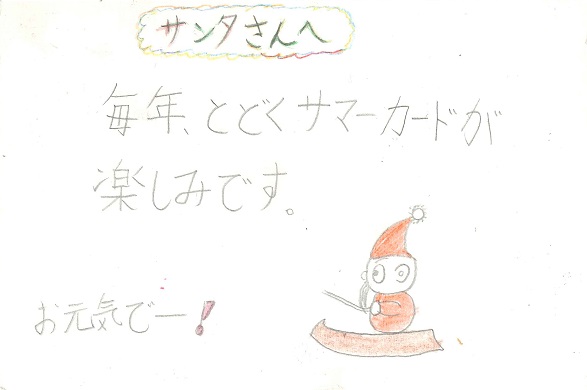 サンタさんへ
毎年、とどくサマーカードが
楽しみです。
お元気でー!